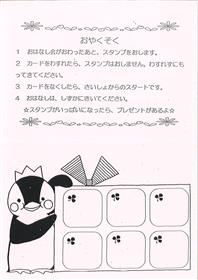 おやくそく
1 おはなし会がおわったあと、スタンプをおします。
2 カードをわすれたら、スタンプはおしません。わすれずにも
ってきてください。
3 カードをなくしたら、さいしょからのスタートです。
4 おはなしは、しずかにきいてください。
☆スタンプがいっぱいになったら、プレゼントがあるよ☆